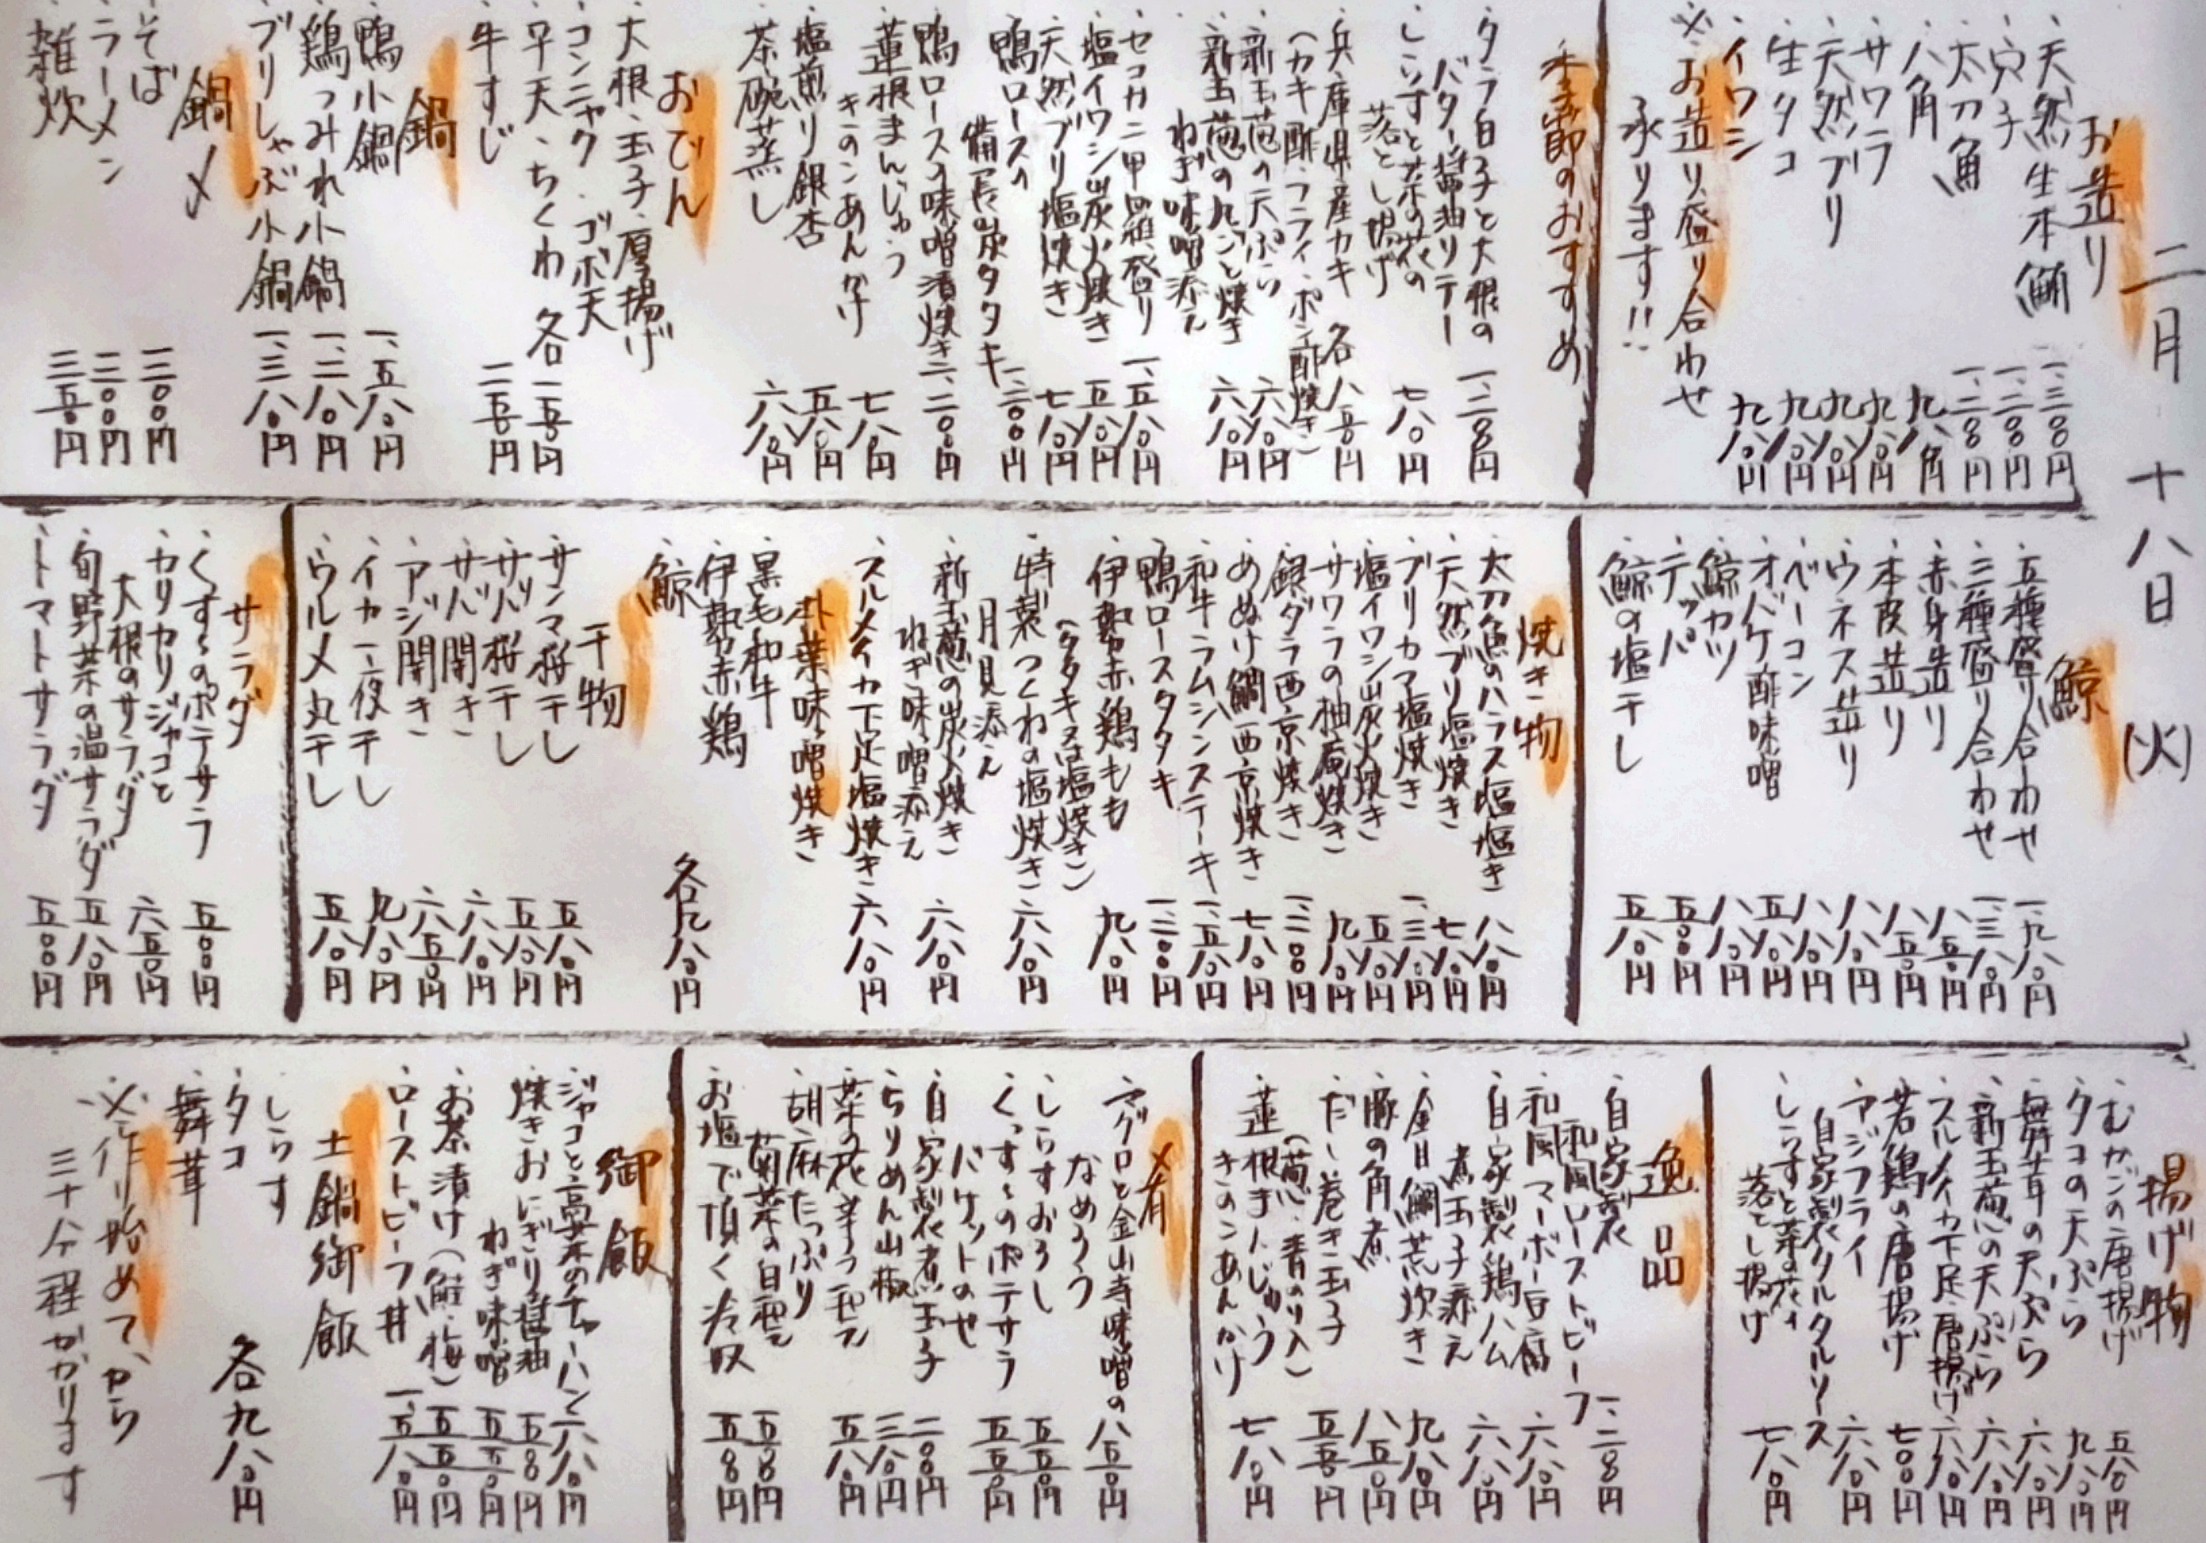 二月十八日(火)
お造り
・天然生本鮪 一、三〇〇円
・穴子 一、二〇〇円
・太刀魚 一、二〇〇円
・八角 九八〇円
・サワラ 九八〇円
・天然ブリ 九八〇円
・生タコ 九八〇円
・イワシ 九八〇円
※お造り盛り合わせ
承ります!!
季節のおすすめ
・タラ白子と大根の
バター醤油ソテー 一、二〇〇円
・しらすと菜の花の
落とし揚げ 七八〇円
・兵庫県産カキ 各八五〇円
(カキ酢・フライ・ポン酢焼き)
・新玉葱の天ぷら 六八〇円
・新玉葱の丸ごと焼き
ねぎ味噌添え 六八〇円
・セコガニ甲羅盛り 一、五八〇円
・塩イワシ炭火焼き 五八〇円
・天然ブリ塩焼き 七八〇円
・鴨ロースの
備長炭タタキ 一、二〇〇円
・鴨ロースの味噌漬焼き 一、二〇〇円
・蓮根まんじゅう
きのこあんかけ 七八〇円
・塩煎り銀杏 五八〇円
・茶碗蒸し 六八〇円
おでん
・大根・玉子・厚揚げ
・コンニャク・ゴボ天
・平天・ちくわ 各一五〇円
・牛すじ 二五〇円
鍋
・鴨小鍋 一、五八〇円
・鶏つみれ小鍋 一、二八〇円
・ブリしゃぶ小鍋 一、三八〇円
鍋〆
・そば 三〇〇円
・ラーメン 三〇〇円
・雑炊 三五〇円
鯨
・五種盛り合わせ 一、九八〇円
・三種盛り合わせ 一、三八〇円
・赤身造り 八五〇円
・本皮造り 八五〇円
・ウネス造り 八八〇円
・ベーコン 八八〇円
・オバケ酢味噌 五八〇円
・鯨カツ 八八〇円
・テッパ 五五〇円
・鯨の塩干し 五八〇円
焼き物
・太刀魚のハラス塩塩き 八八〇円
・天然ブリ塩焼き 七八〇円
・ブリカマ塩焼き 一、三八〇円
・塩イワシ炭火焼き 五八〇円
・サワラの柚庵焼き 九八〇円
・銀ダラ西京焼き 一、二〇〇円
・あぬけ鯛西京焼き 七八〇円
・和牛ラムシンステーキ 一、五八〇円
・鴨ロースタタキ 一、二〇〇円
・伊勢赤鶏もも
(タタキ又は塩焼き) 九八〇円
・特製つくねの塩焼き
月見添え 六八〇円
・新玉葱の炭火焼き
ねぎ味噌添え 六八〇円
・スルメイカ下足塩焼き 六八〇円
朴葉味噌焼き
・黒毛和牛
・伊勢赤鶏
・鯨 各九八〇円
干物
・サンマ桜干し 五八〇円
・サバ桜干し 五八〇円
・サバ開き 六八〇円
・アジ開き 六五〇円
・イカ一夜干し 九八〇円
・ウルメ丸干し 五八〇円
サラダ
・くずしのポテサラ 五〇〇円
・カリカリジャコと
大根のサラダ 六五〇円
・旬野菜の温サラダ 五八〇円
・トマトサラダ 五〇〇円
揚げ物
・むかごの唐揚げ 五八〇円
・タコの天ぷら 九八〇円
・舞茸の天ぷら 六八〇円
・新玉葱の天ぷら 六八〇円
・スルメイカ下足唐揚げ 六八〇円
・若鶏の唐揚げ 七〇〇円
・アジフライ
自家製タルタルソース 六八〇円
・しらすと菜の花の
落とし揚げ 七八〇円
逸品
・自家製
和風ローストビーフ 一、二八〇円
・和風マーボー豆腐 六八〇円
・自家製鶏ハム
煮玉子添え 六八〇円
・金目鯛荒炊き 九八〇円
・豚の角煮 八五〇円
・だし巻き玉子
(葱・青のり入) 五五〇円
・蓮根まんじゅう
きのこあんかけ 七八〇円
〆肴
・マグロと金山寺味噌の
なめろう 八五〇円
・しらすおろし 五五〇円
・くずしのポテサラ
バケットのせ 五五〇円
・自家製煮玉子 二〇〇円
・ちりめん山椒 三八〇円
・菜の花辛子和え 五八〇円
・胡麻たっぷり
菊菜の白和え 五五〇円
・お塩で頂く冷奴 五五〇円
御飯
・ジャコと高菜のチャーハン 六八〇円
・焼きおにぎり醤油 五五〇円
ねぎ味噌 五五〇円
・お茶漬け(鮭・梅) 五五〇円
・ローストビーフ丼 一、五八〇円
土鍋御飯
・しらす
・タコ
・舞茸 各九八〇円
※作り始めてから
三十分程かかります